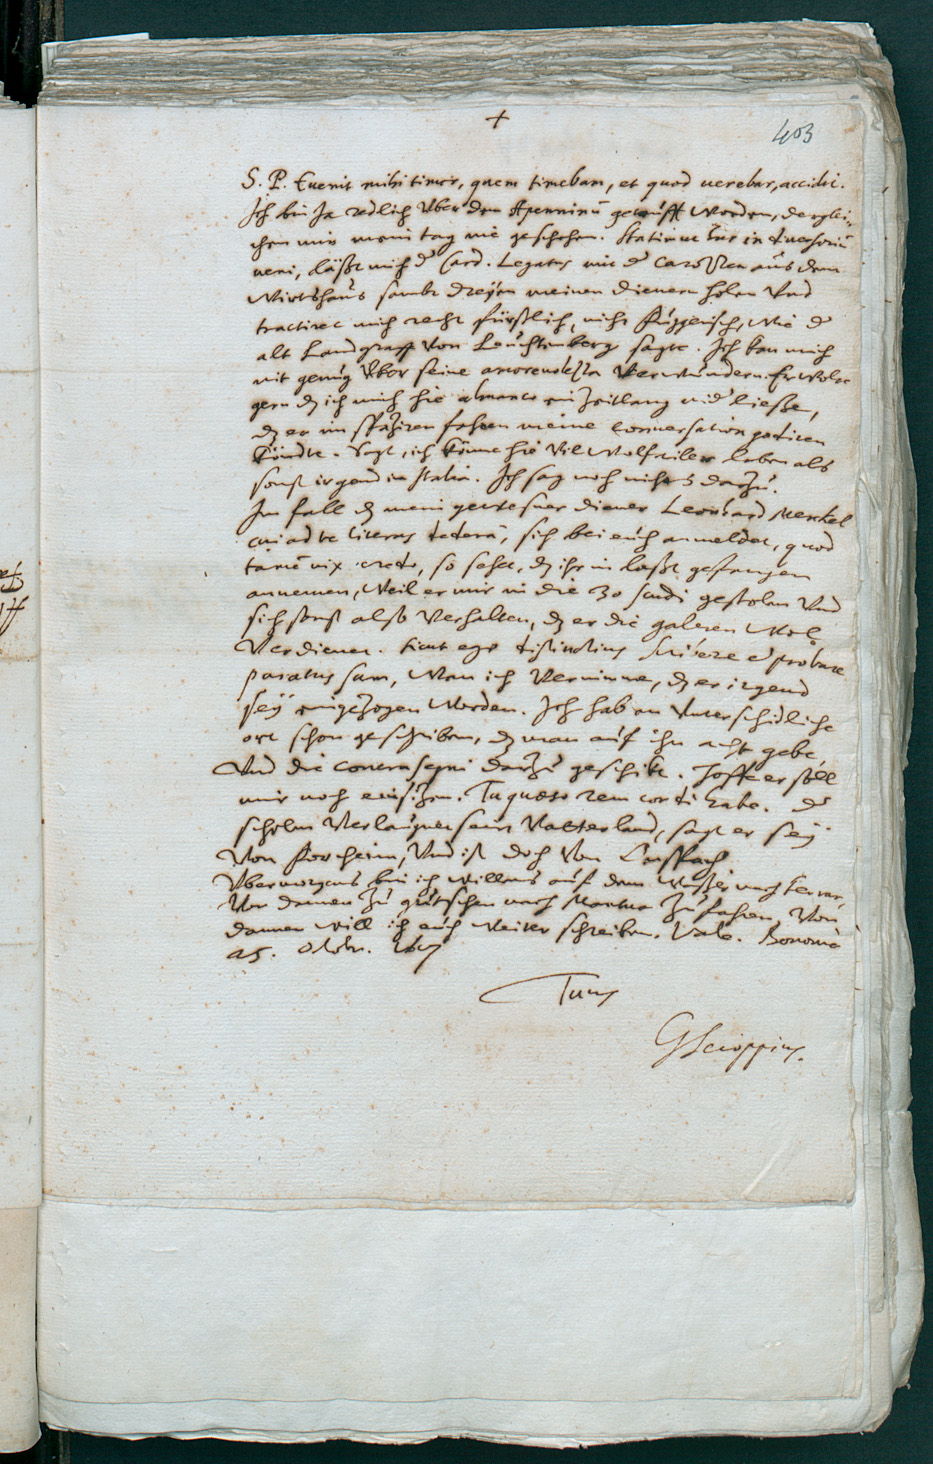 +
403
S. P. Euenit mihi timor, quem timebam, et quod uerebar, accidit.
Ich bin Ja redlich Vber den Apenninũ getaüfft Worden, derglei=
chen mir mein tag nie geschehen. Statim ut huc in diuersoriũ
ueni, läßt mich d Card. Legatus mit d Carozzen aus dem
Wirtshaus sambt dreÿen meinen dienern holen Vnd
tractiret mich recht fürstlich, nicht fuggerisch, Wie d
alt Landgraff Von Leuchtenberg sagte. Ich kan mich
nit genug Vber seine amoreuolezza Verwundern. Er Wolte
gern dz ich mich hie almanco ein Zeitlang nid ließe,
dz er im spaziren fahren meine conuersation godiren
köndte. Sagt, ich könne hie Vil Wolfeiler leben als
sonst irgend in Italia. Ich sag noch nichts darzu.
Im fall dz mein gewesner diener Leonhard Merkel
cui ad te literas dederã, sich bei euch anmeldet, quod
tamẽ vix credo, so sehet, dz ihr in laßt gefangen
annemen, Weil er mir in die 30 scudi gestolen Vnd
sich sonst alß Verhalten, dz er die galeren Wol
Verdienet. sicut ego distinctius scribere et probare
paratus sum, Wan ich Vernimme, dz er irgend
seÿ eingezogen Worden. Ich hab an Vnterschidliche
ort schon geschriben, dz man auf ihn acht gebe,
Vnd die contrasegni darzu geschikt. Hoffe er soll
mir noch einsizen. Tu quæso rem cordi habe. d
schelm Verlaugnet sein Vatterland, sagt er seÿ
Von Forcheim, Vnd ist doch Von
Vbermorgens bin ich Willens auf dem Waßer nach Ferrar,
Von dannen zu gutschen nach Mantua zu fahren, Von
dannen will ich euch Weiter schreiben. Vale. Bononiæ
25. Octobr. 1607
Tuus
GScioppius.